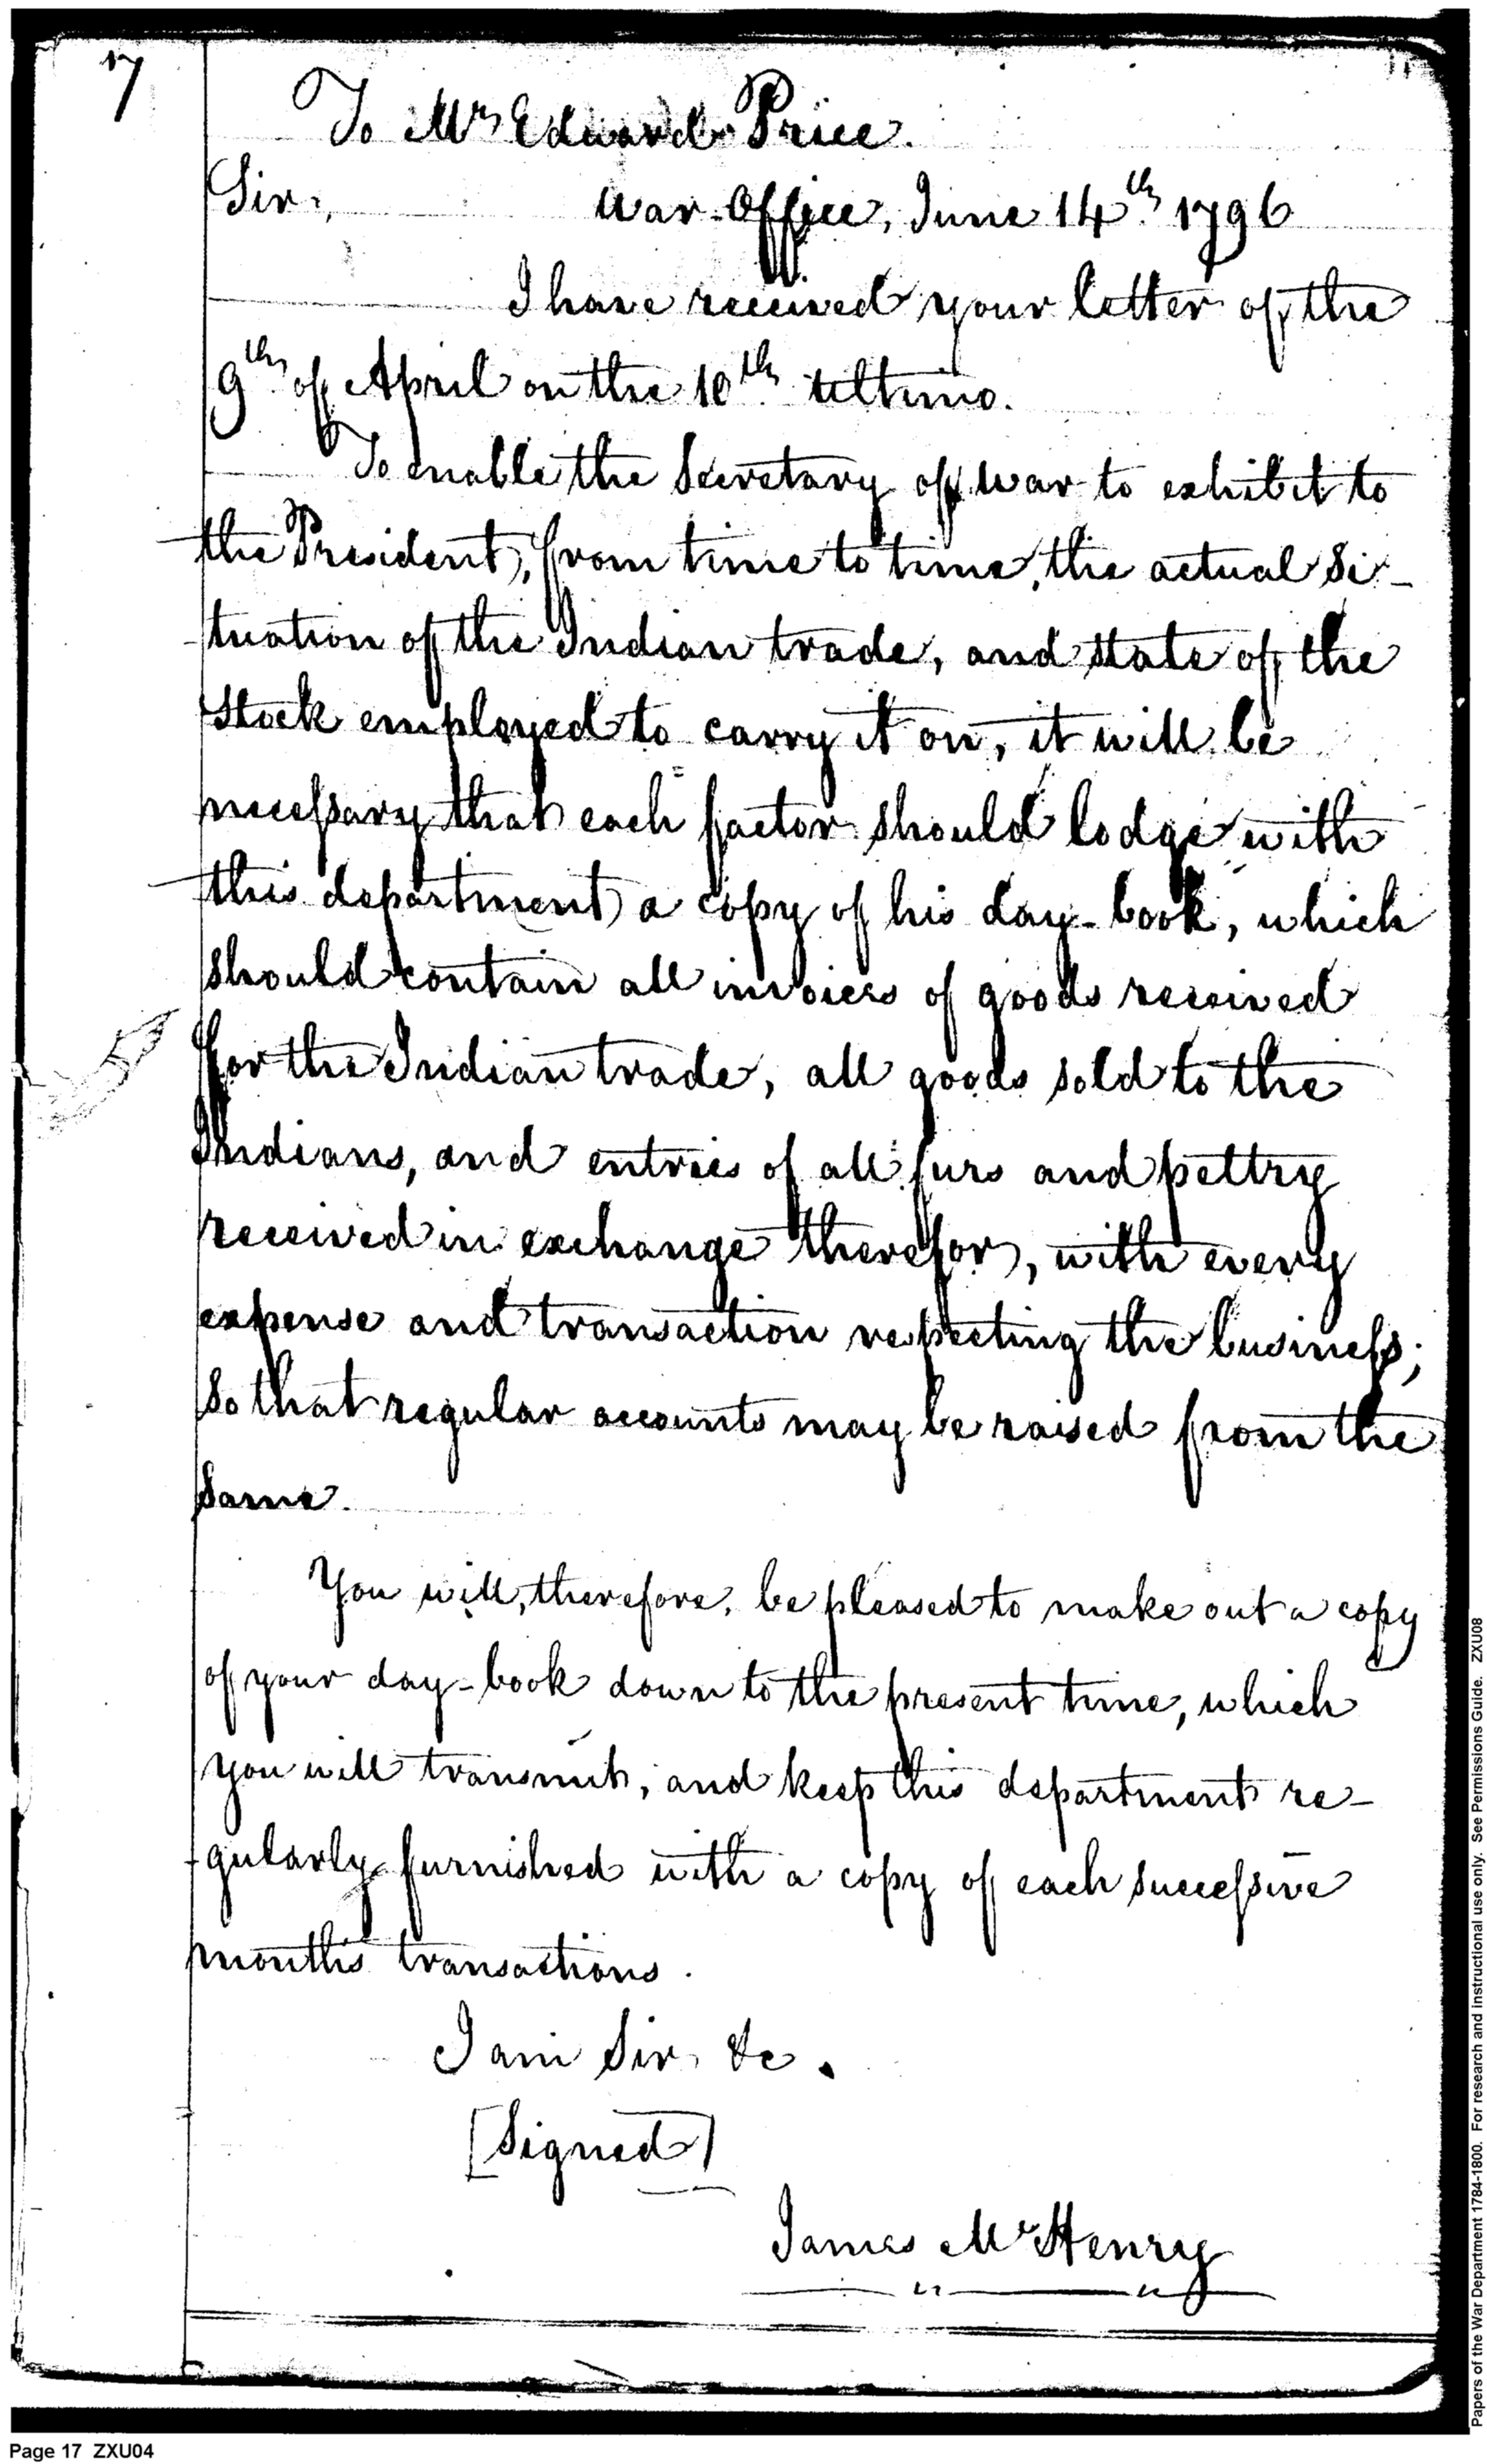 17
To Mr Edward Price.
Sir, War-Office, June 14th 1796
I have received your letter of the
9th of April on the 10th ultimo.
To enable the Secretary of war to exhibit to
the President, from time to time, the actual si-
tuation of the Indian trade, and state of the
stock employed to carry it on, it will be
necessary that each factor should lodge with
this department a copy of his day-book, which
should contain all invoices of goods received
for the Indian trade, all goods sold to the
Indians, and entries of all furs and peltry
received in exchange therefor, with every
expense and transaction respecting the business;
so that regular accounts may be raised from the
same.
You will, therefore, be pleased to make out a copy
of your day-book down to the present time, which
you will transmit, and keep this department re-
gularly furnished with a copy of each successive
month's transactions.
I am Sir, &c.
[Signed]
James McHenry
Papers of the War Department 1784-1800. For research and instructional use only. See Permissions Guide. ZXU08
Page 17 ZXU04